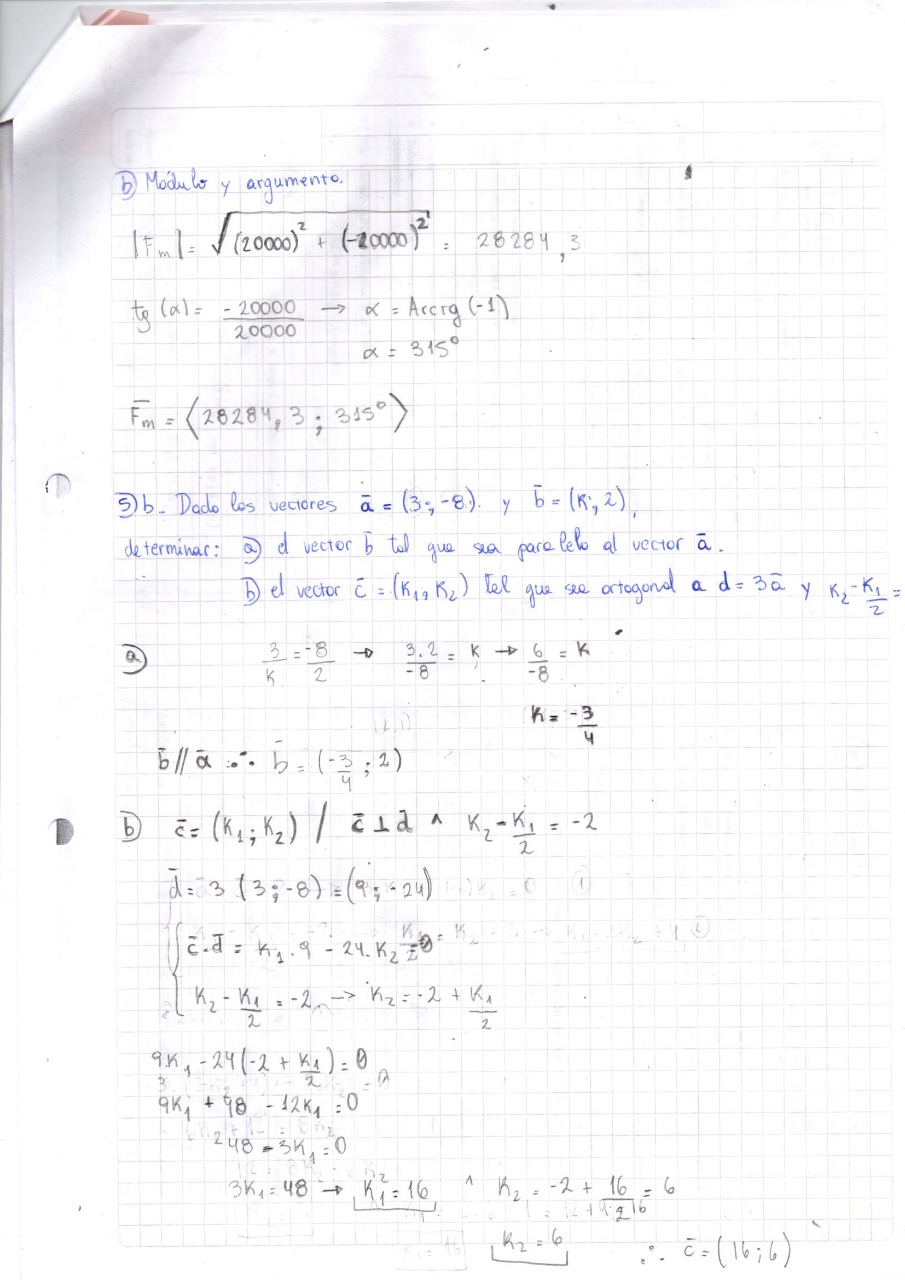 b) Módulo y argumento.
|Fm| = √((20000)² + (-20000)²) = 28284,3
tg (α) = -20000/20000 → α = Arcrg (-1)
α = 315°
F̄m = ⟨28284,3 ; 315°⟩
5)b- Dado los vectores ā = (3;-8). y b̄ = (K; 2),
determinar: a) el vector b̄ tal que sea paralelo al vector ā.
b) el vector c̄ = (K₁, K₂) tel que sea ortogonal a d = 3ā y K₂ - K₁/2 =
a) 3/K = -8/2 → 3.2/-8 = K → 6/-8 = K
K = -3/4
b̄ // ā ∴ b̄ = (-3/4 ; 2)
b) c̄ = (K₁; K₂) / c̄ ⊥ d̄ ^ K₂ - K₁/2 = -2
d̄ = 3 (3;-8) = (9; -24)
c̄.d̄ = K₁.9 - 24.K₂ = 0
K₂ - K₁/2 = -2 → K₂ = -2 + K₁/2
9K₁ - 24(-2 + K₁/2) = 0
9K₁ + 48 - 12K₁ = 0
48 - 3K₁ = 0
3K₁ = 48 → K₁ = 16 ^ K₂ = -2 + 16/2 = 6
K₂ = 6 ∴ c̄ = (16;6)